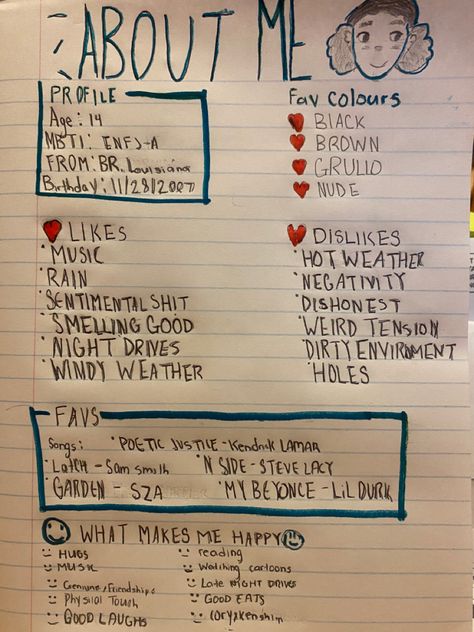 ABOUT ME
PROFILE
Age: 14
MBTI: ENFJ-A
FROM: BR, Louisiana
Birthday: 11/28/2007
Fav Colours
BlACK
BROWN
GRUllO
NUDE
LIKES
·MUSIC
·RAIN
·SENTIMENTAL SHIT
·SMELLING GOOD
·NIGHT DRIVES
·WINDY WEATHER
DISLIKES
·HOT WEATHER
·NEGATIVITY
·DISHONEST
·WEIRD TENSION
·DIRTY ENVIROMENT
·HOLES
FAVS
Songs: ·POETIC JUSTICE - Kendrick LAMAR
·Latch - Sam smith ·N SIDE - STEVE LACY
·GARDEN - SZA ·MY BEYONCE - LiL DURK
WHAT MAKES ME HAPPY
HUGS
MUSIC
Genuine/Friendships
Physical Touch
GOOD LAUGHS
reading
Watching cartoons
Late NIGHT DRIVE
GOOD EATS
CoryxKenshin